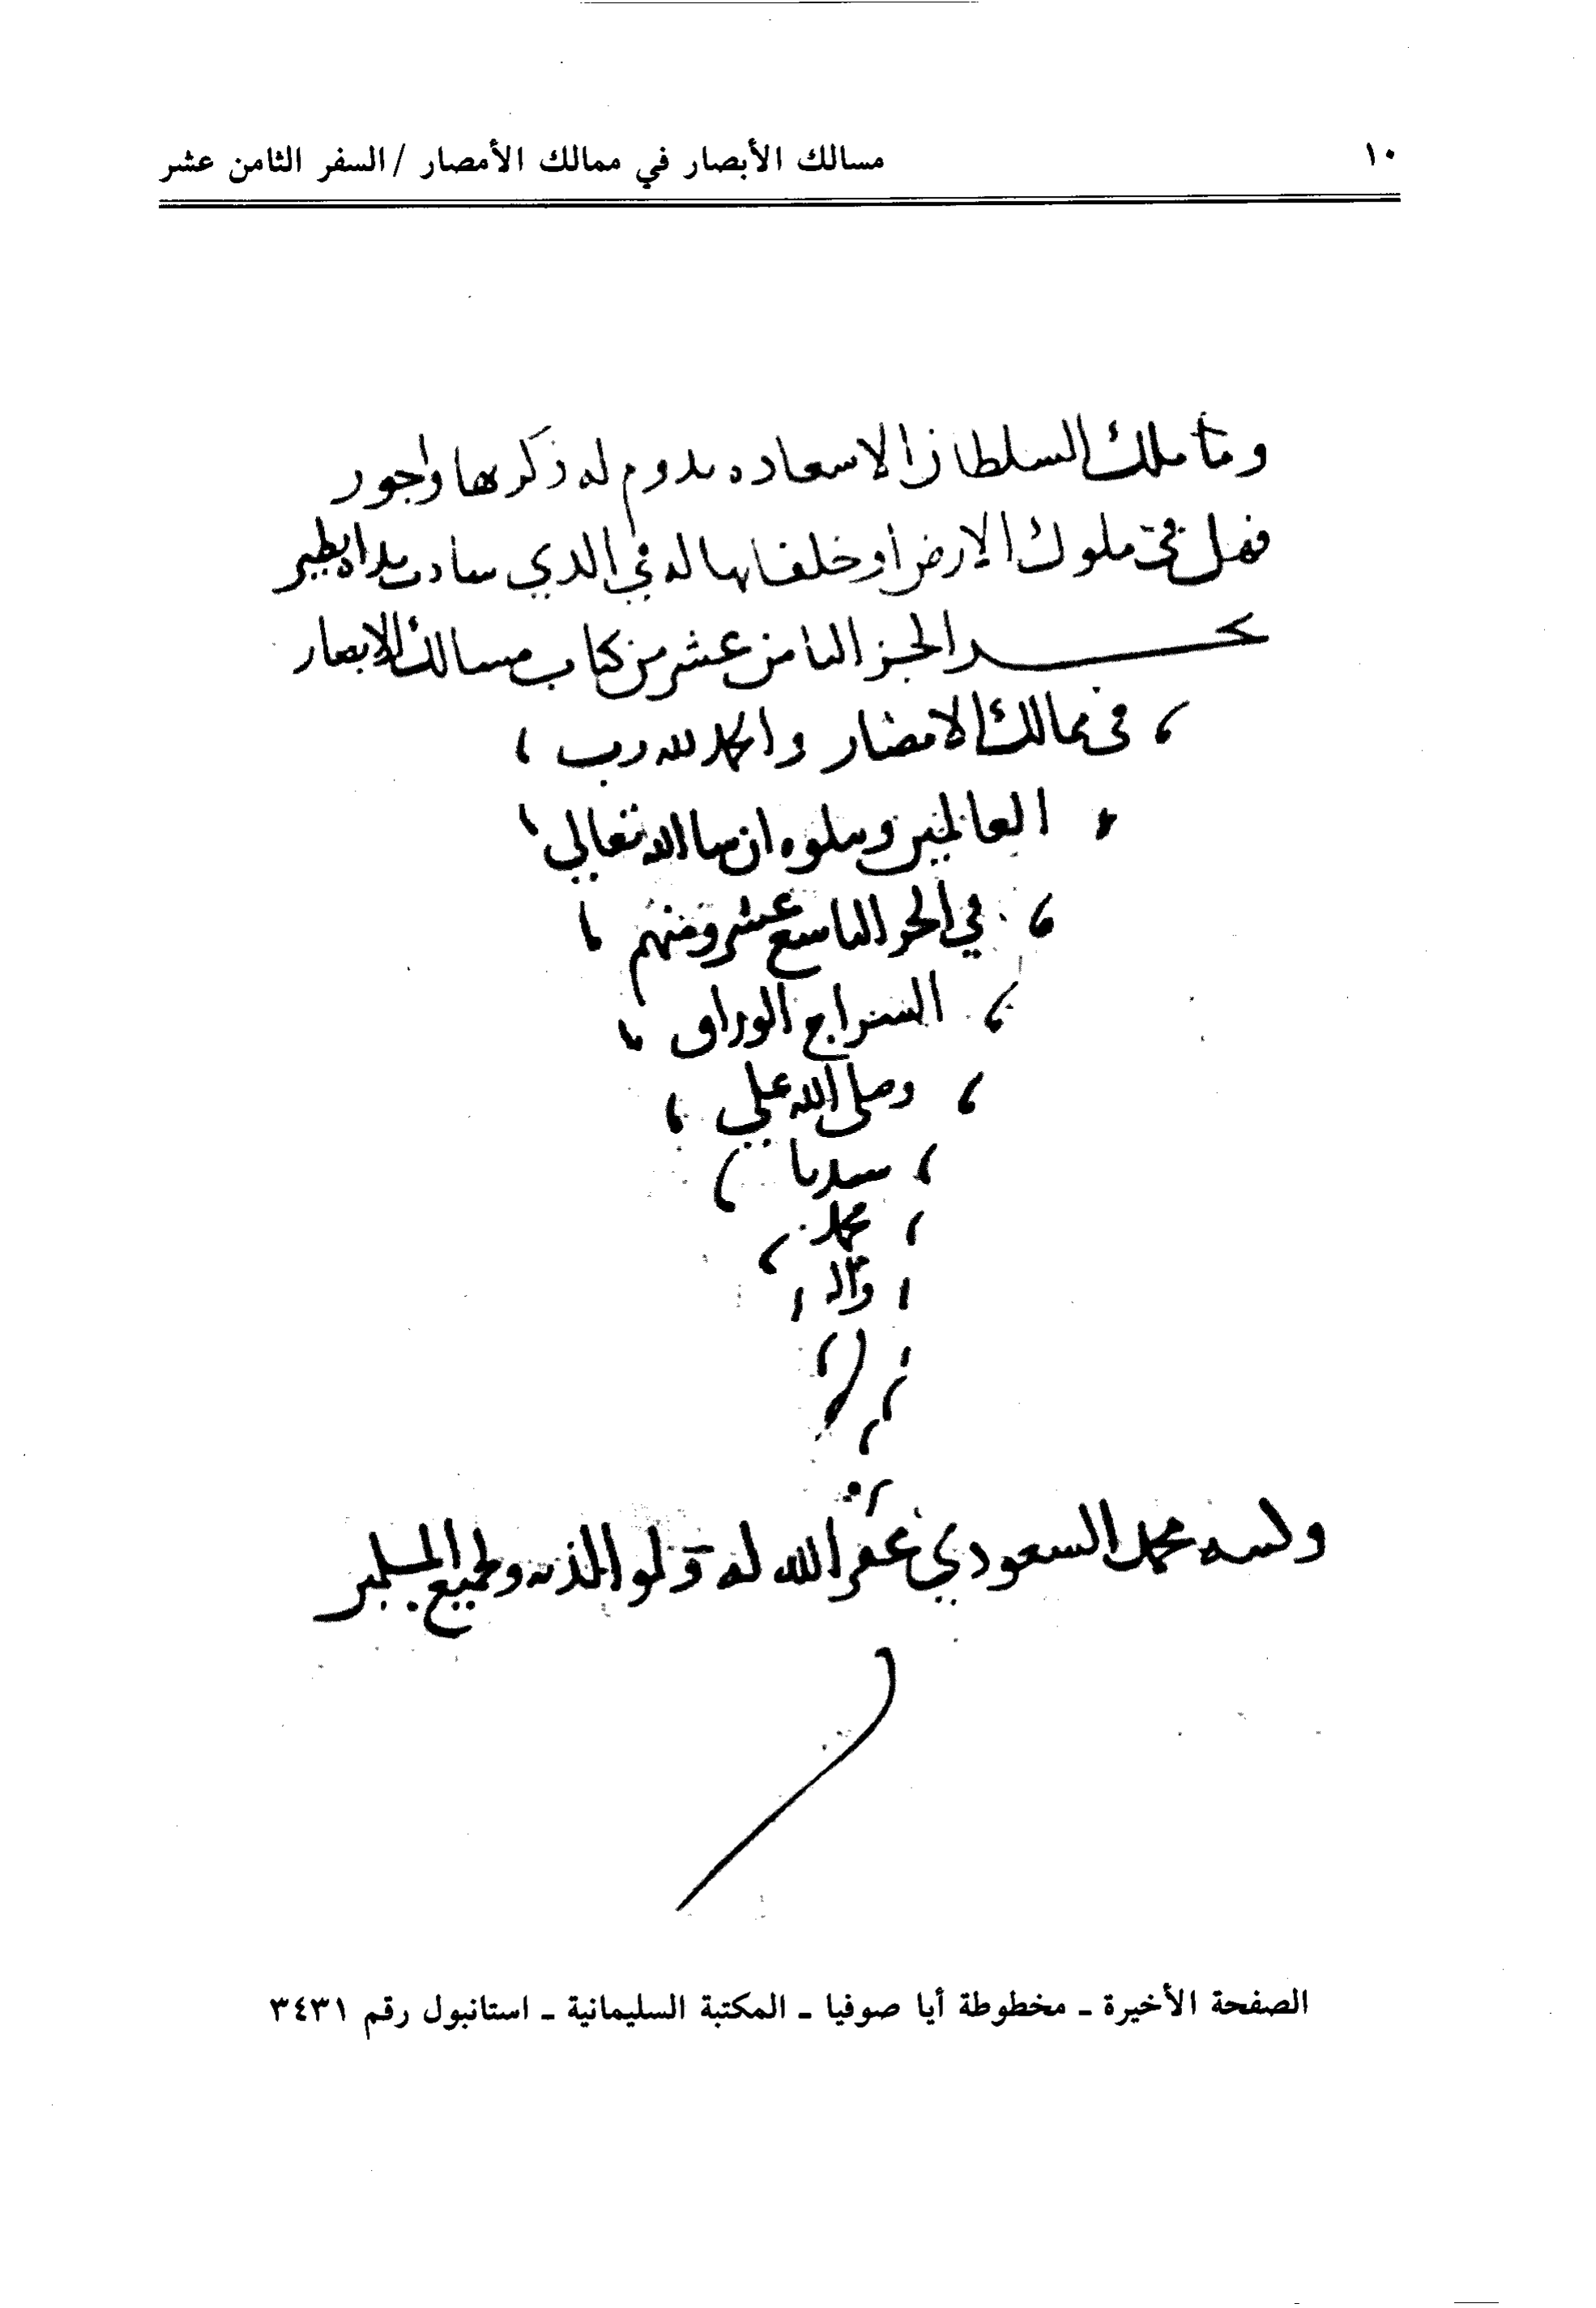 ١٠
مسالك الأبصار في ممالك الأمصار / السفر الثامن عشر
وما ملك السلطان الا سعاده يدوم له ذكر بها واجور
فهل في ملوك الارض او خلفايها له في الذي سادت يداه نظير
نجد الجز الثامن عشر من كتاب مسالك الابصار
في ممالك الامصار والحمد لله رب
العالمين ويتلوه ان شا الله تعالي
في الجز التاسع عشر ومنهم
السراج الوراق
وصلى الله علي
سيدنا
محمد
وآله
محمد السعودي غفر الله له ولوالديه ولجميع المسلمين
الصفحة الأخيرة - مخطوطة أيا صوفيا - المكتبة السليمانية - استانبول رقم ٣٤٣١